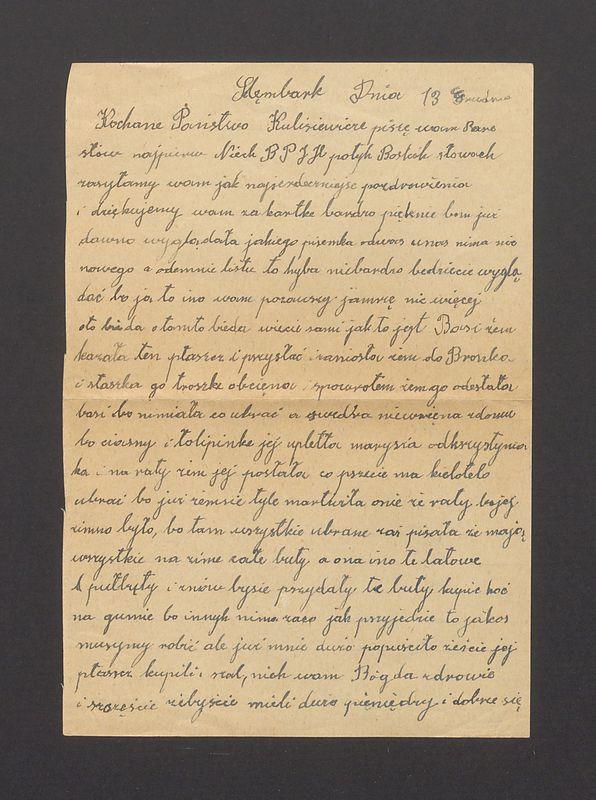 Szembark Dnia 13 Grudnia
Kochane Państwo Kulisiewicze piszę wam pare
słów najpierw Niech B P J H potyh Boskih słowach
zasyłamy wam jak najserdeczniejsze pozdrowienia
i dziękujemy wam za kartke bardzo pięknie bom już
dawno wyglądała jakiego pisemka odwas unas nima nic
nowego a odemnie listu to hyba niebardzo bedziecie wyglą
dać bo ja to ino wam nic więcej
oto bieda otomto bieda wiecie sami jak to jest Basi żem
kazała ten płaszcz i przysłać i zaniosła żem do Bronka
i staszka go troszke obcięna i spowrotem żem go odesłała
basi bo nimiała co ubrać a niewzięna zdomu
bo ciasny i tolipinke jej upletła marysia odkrzystynia
ka i na raty żem jej posłała co pszcie ma kielotelo
ubrać bo już żemsie tyle martwiła onie że raty bojej
zimno było, bo tam wszystkie ubrane zaś pisała że mają
wszystkie na zime całe buty a ona ino te latowe
A pułbuty i znów bysie przydały te buty kupic hoć
na gumie bo innyh nima zaco jak przyjedzie to jakos
musymy robić ale już mnie dużo popuściło żeście jej
płaszcz kupili i szal, nieh wam Bóg da zdrowie
i szczęście żebyście mieli dużo pieniędzy i dobrze się